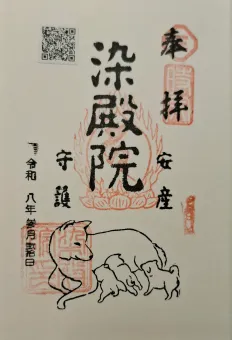 奉拝
安産
染殿院
守護
令和八年参月吉日